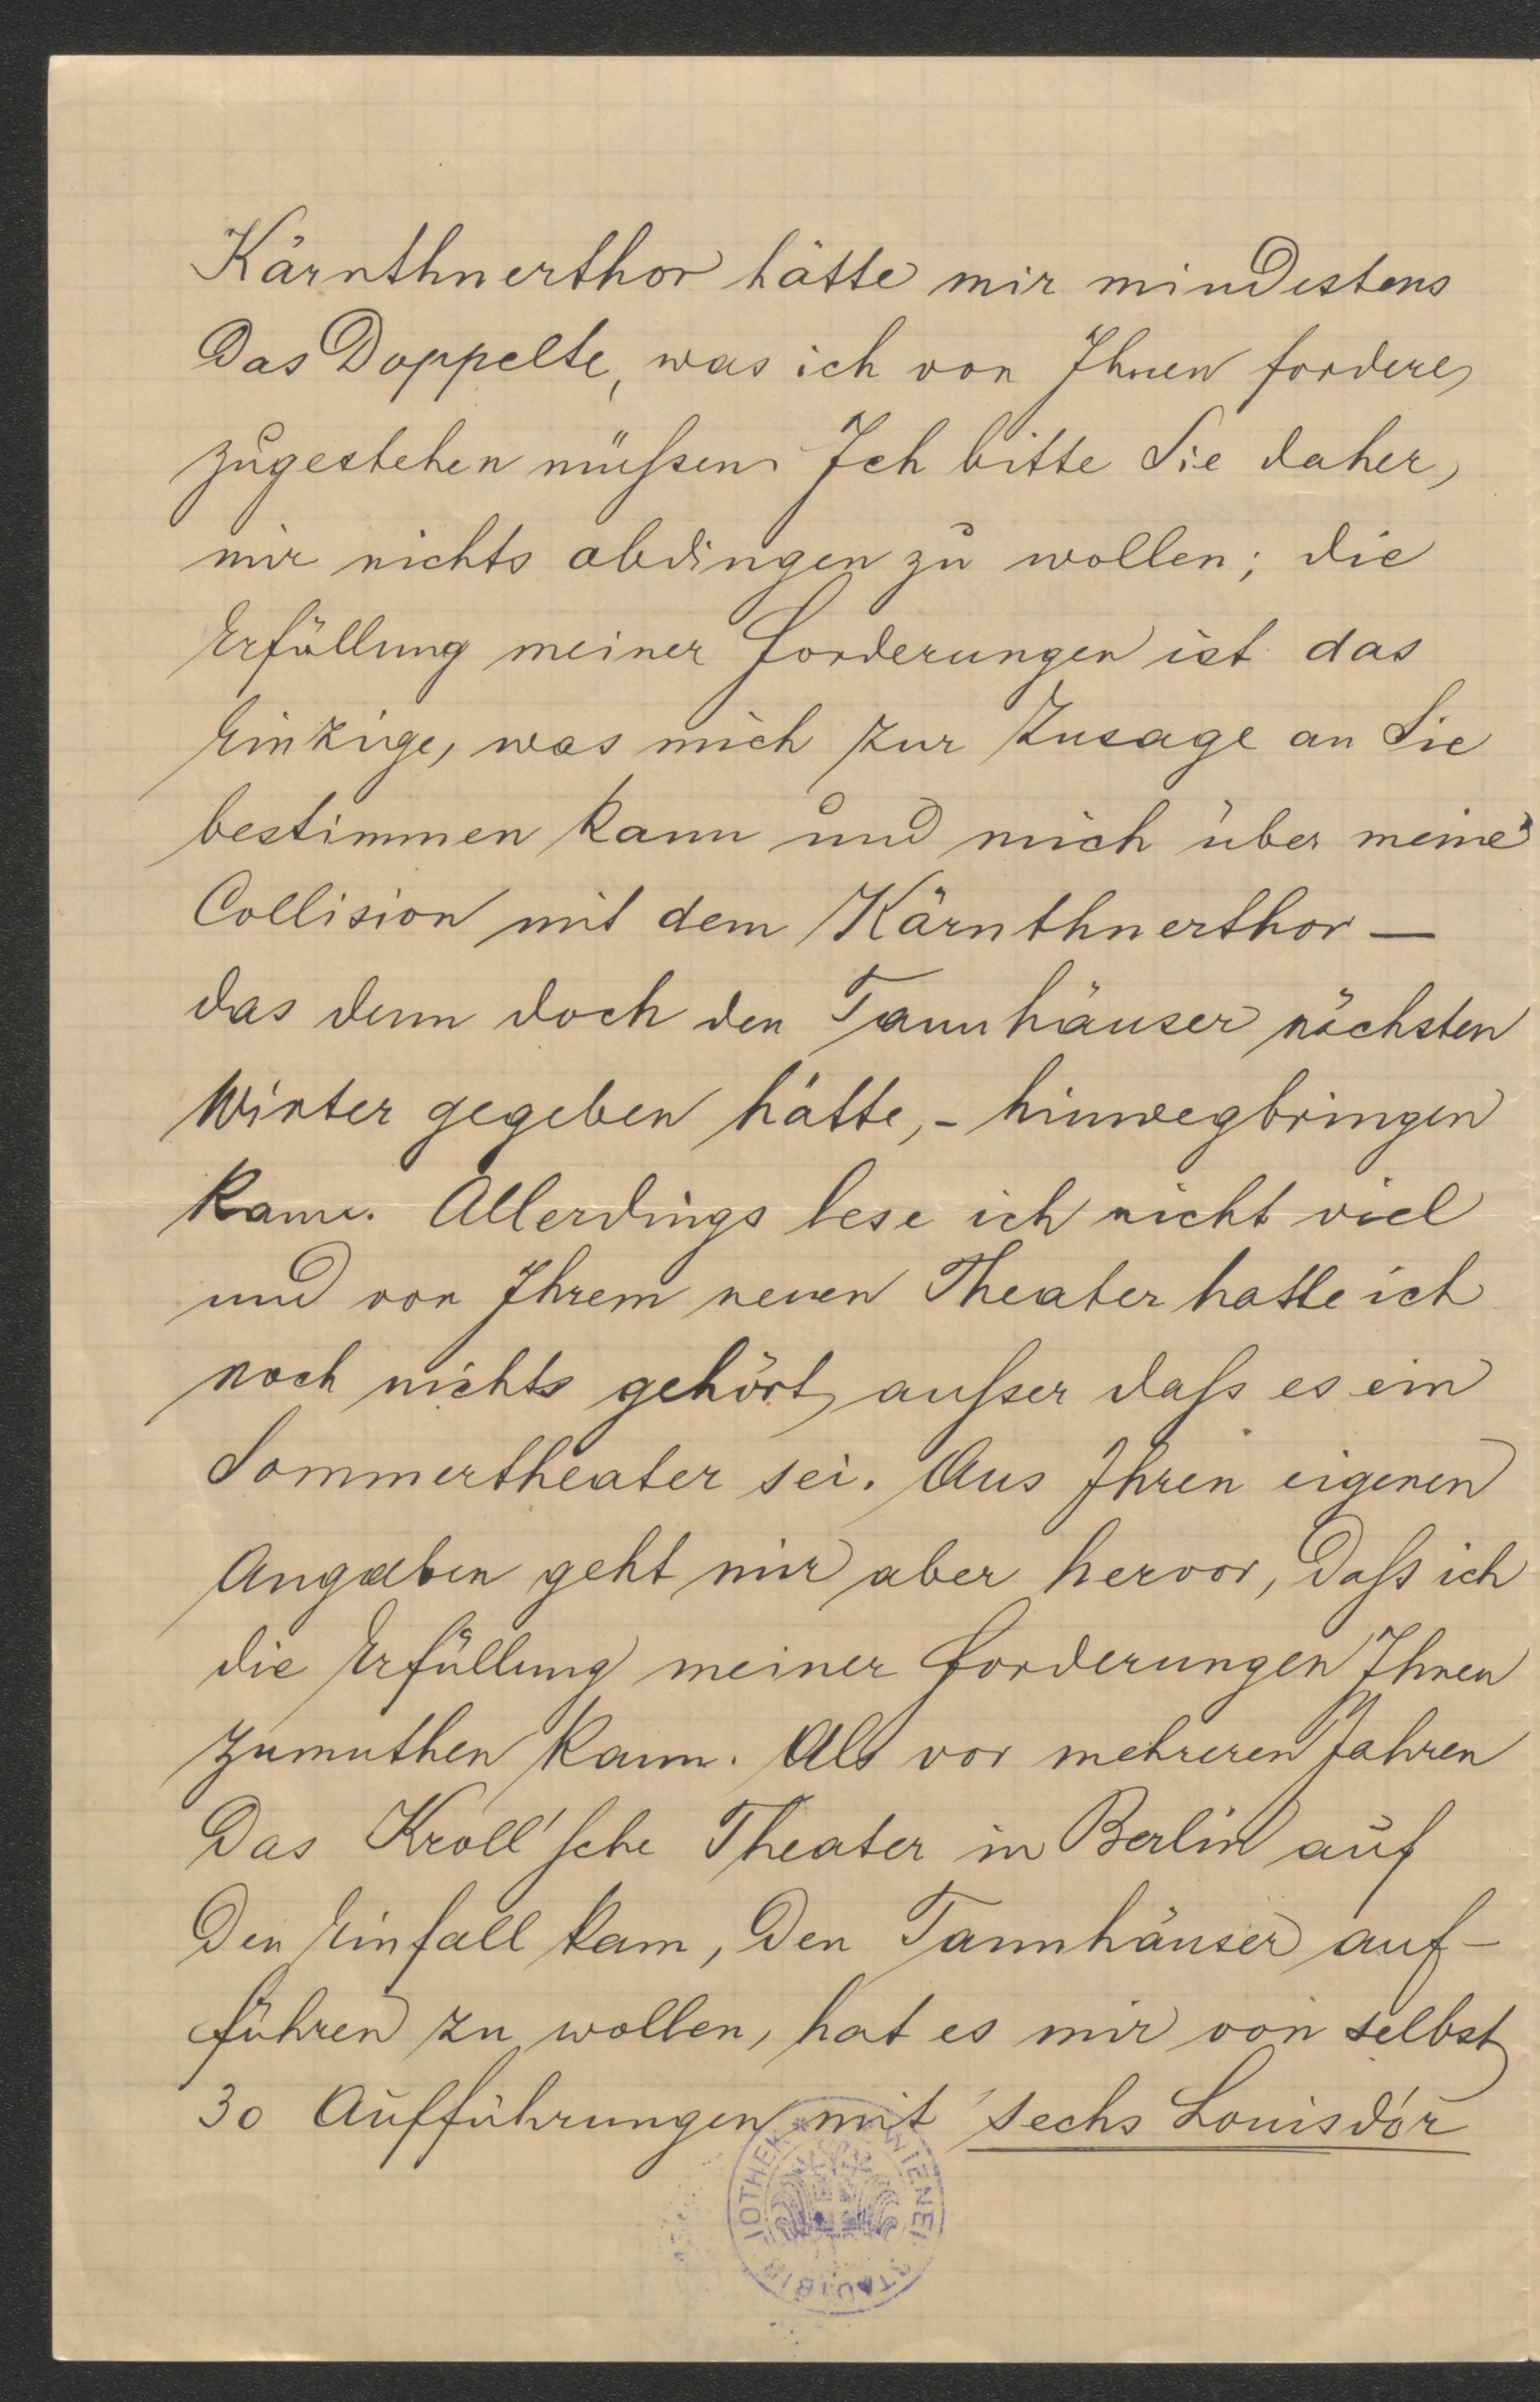 Kärnthnerthor hätte mir mindestens
das Doppelte, was ich von Ihnen fordere,
zugestehen müßen. Ich bitte Sie daher,
mir nichts abdingen zu wollen; die
Erfüllung meiner Forderungen ist das
Einzige, was mich zur Zusage an Sie
bestimmen kann und mich über meine
Collision mit dem Kärnthnerthor —
das denn doch den Tannhäuser nächsten
Winter gegeben hätte, - hinwegbringen
kann. Allerdings lese ich nicht viel
und von Ihrem neuen Theater hatte ich
noch nichts gehört, außer daß es ein
Sommertheater sei. Aus Ihren eigenen
Angaben geht mir aber hervor, daß ich
die Erfüllung meiner Forderungen Ihnen
zumuthen kann. Als vor mehreren Jahren
das Kroll'sche Theater in Berlin auf
den Einfall kam, den Tannhäuser auf-
führen zu wollen, hat es mir von selbst
30 Aufführungen mit sechs Louisd'or
WIENER STADTBIBLIOTHEK *